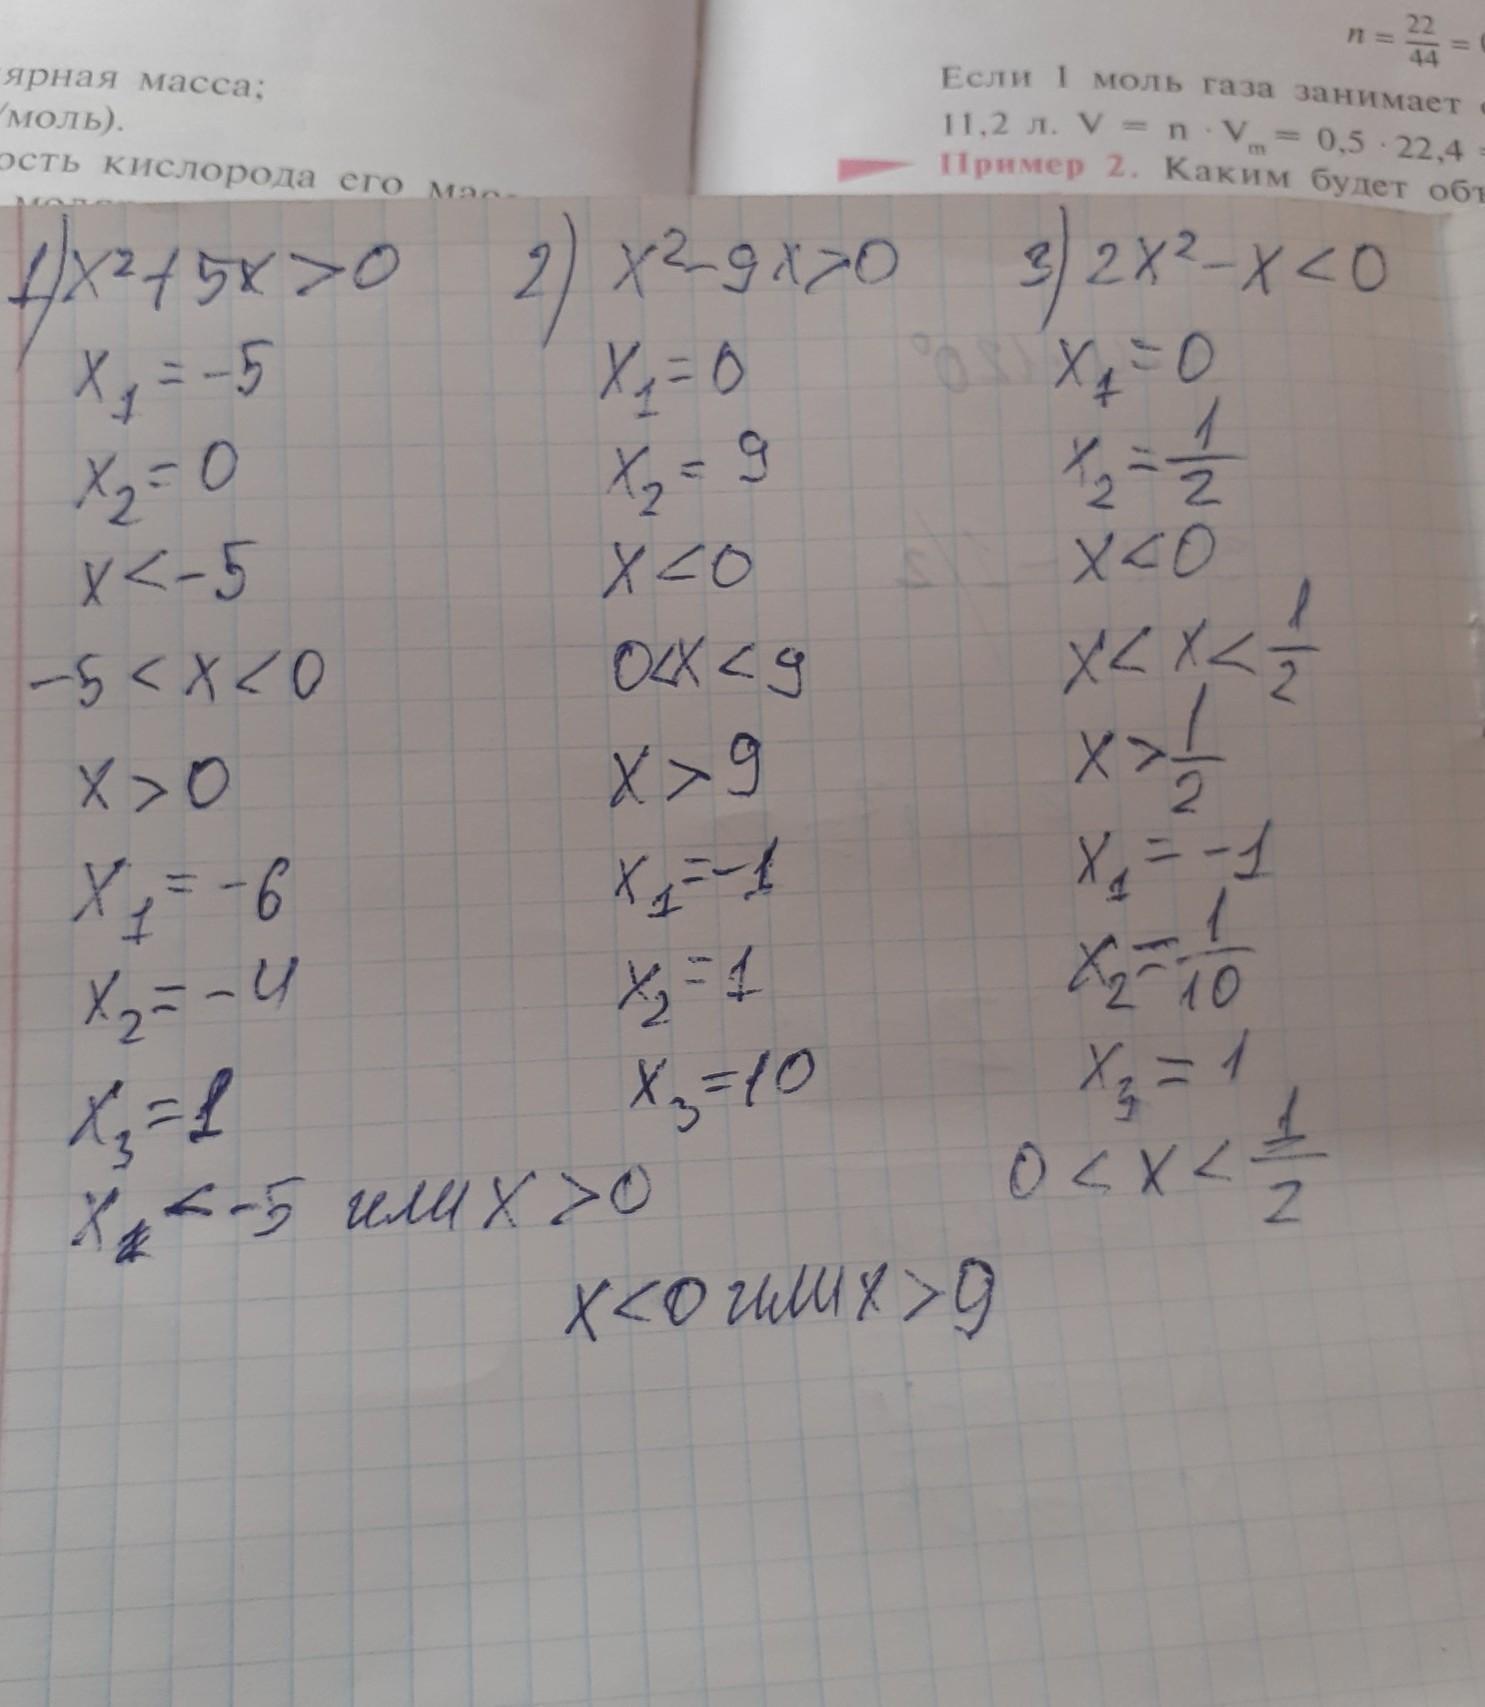 ярная масса;
/моль).
ость кислорода его
n = 22/44 =
Если 1 моль газа занимает
11,2 л. V = n · Vm = 0,5 · 22,4 =
Пример 2. Каким будет
1) x² + 5x > 0
x₁ = -5
x₂ = 0
x < -5
-5 < x < 0
x > 0
x₁ = -6
x₂ = -4
x₃ = 1
x < -5 или x > 0
2) x² - 9x > 0
x₁ = 0
x₂ = 9
x < 0
0 < x < 9
x > 9
x₁ = -1
x₂ = 1
x₃ = 10
x < 0 или x > 9
3) 2x² - x < 0
x₁ = 0
x₂ = 1/2
x < 0
x < x < 1/2
x > 1/2
x₁ = -1
x₂ = 1/10
x₃ = 1
0 < x < 1/2